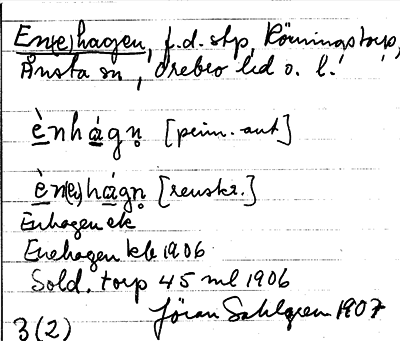 En(e)hagen, f.d. stp, Rönningstorp,
Ånsta sn, Örebro hd o. l.
ènhágn̥ [prim.-ant]
èn(e)hágn̥ [renskr.]
Enhagen ek
Enehagen kb 1906
Sold. torp 45 ml 1906
Jöran Sahlgren 1907
3(2)